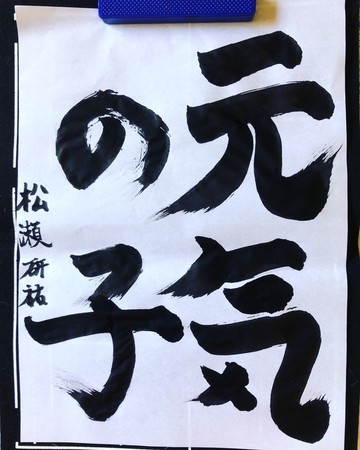 元気
の子
松瀬研祐